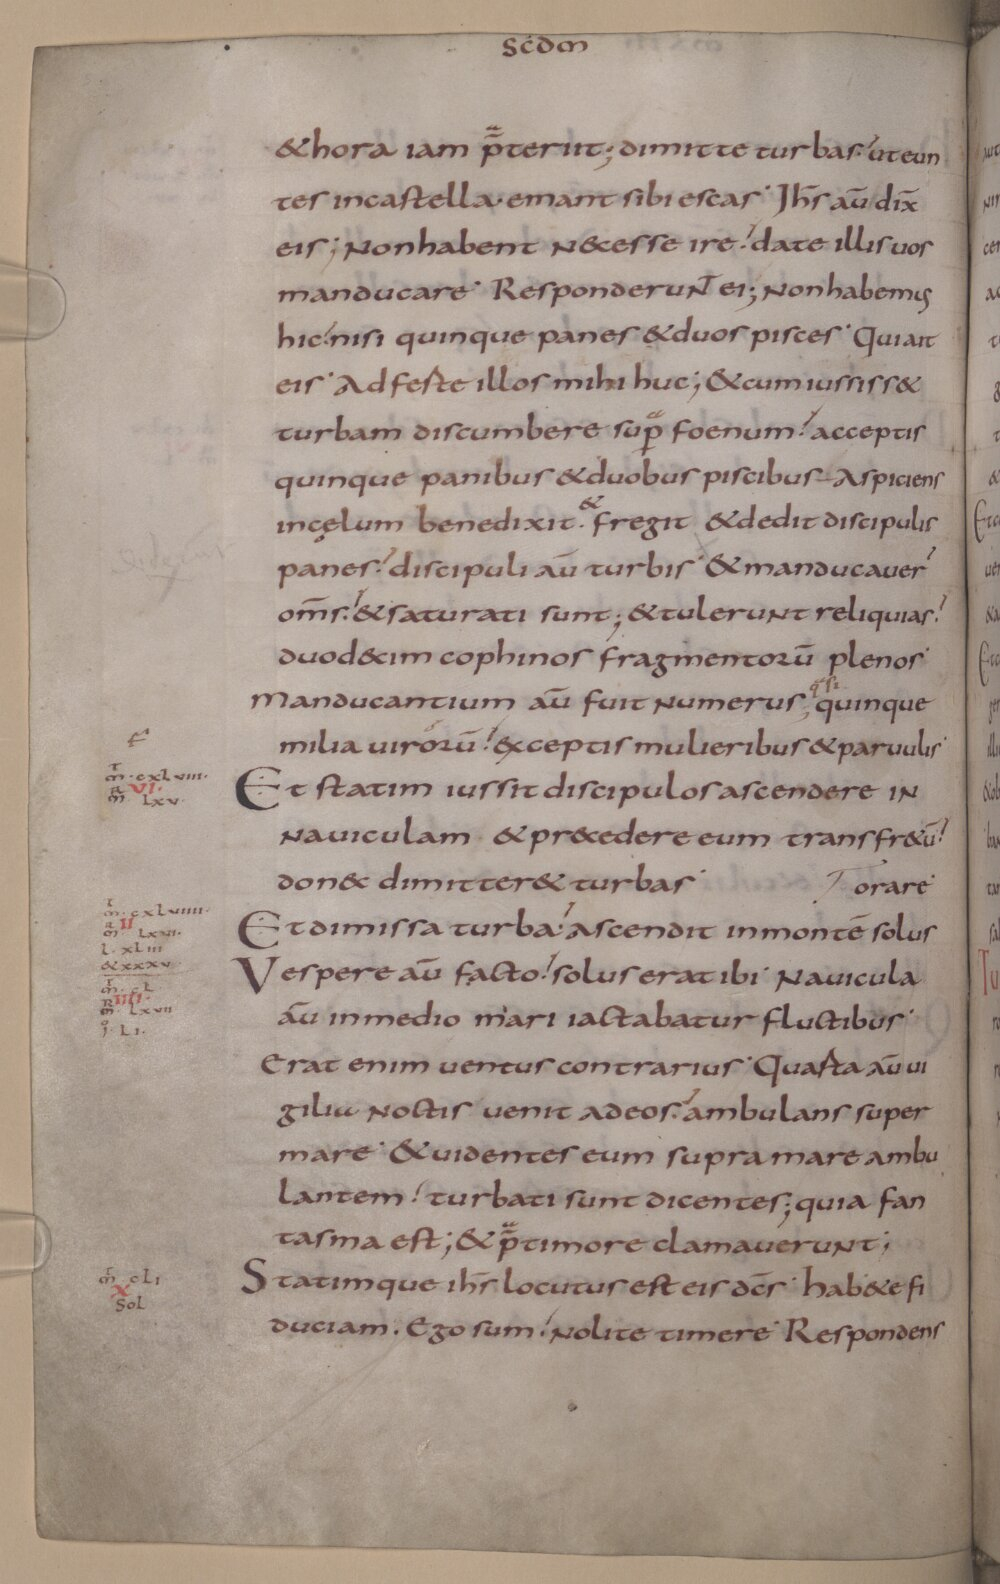 SCĐM
& hora iam p̄teriit; dimitte turbas. ut eun
tes in castella. emant sibi escas. Ih̄s au̅ dix̄
eis; Non habent necesse ire. date illis uos
manducare. Responderunt̄ ei; Non habemus
hic. nisi quinque panes & duos pisces. Qui ait
eis. Adferte illos mihi huc; & cum iussiss&
turbam discumbere sup̱ foenum. acceptis
quinque panibus & duobus piscibus. Aspiciens
in cęlum benedixit. & fregit & dedit discipulis
panes. discipuli au̅ turbis. & manducauer̄
om̄s. & saturati sunt; & tulerunt reliquias.
duodecim cophinos fragmentoru̅ plenos.
Manducantium au̅ fuit numerus; q̄si quinque
milia uiroru̅. exceptis mulieribus & paruulis.
Et statim iussit discipulos ascendere in
m̄. cxlviii.
VI.
m̄ lxv.
nauiculam & pr&cedere eum trans fr&u̅.
don&c dimitter& turbas. orare.
Et dimissa turba. ascendit in monte̅ solus
m̄. cxlviiii.
II
m̄. lxvi.
l. xliii
& xxxv
Vespere au̅ facto. solus erat ibi. Nauicula
m̄. cl
IIII.
m̄. lxvii
i. li.
au̅ in medio mari iactabatur fluctibus.
Erat enim uentus contrarius. Quarta au̅ ui
gilia noctis uenit ad eos. ambulans super
mare. & uidentes eum supra mare ambu
lantem. turbati sunt dicentes; quia fan
tasma est; & p̄ timore clamauerunt;
Statimque ih̄s locutus est eis dc̄s. hab&e fi
m̄ cli
X
Sol
duciam. Ego sum. nolite timere. Respondens